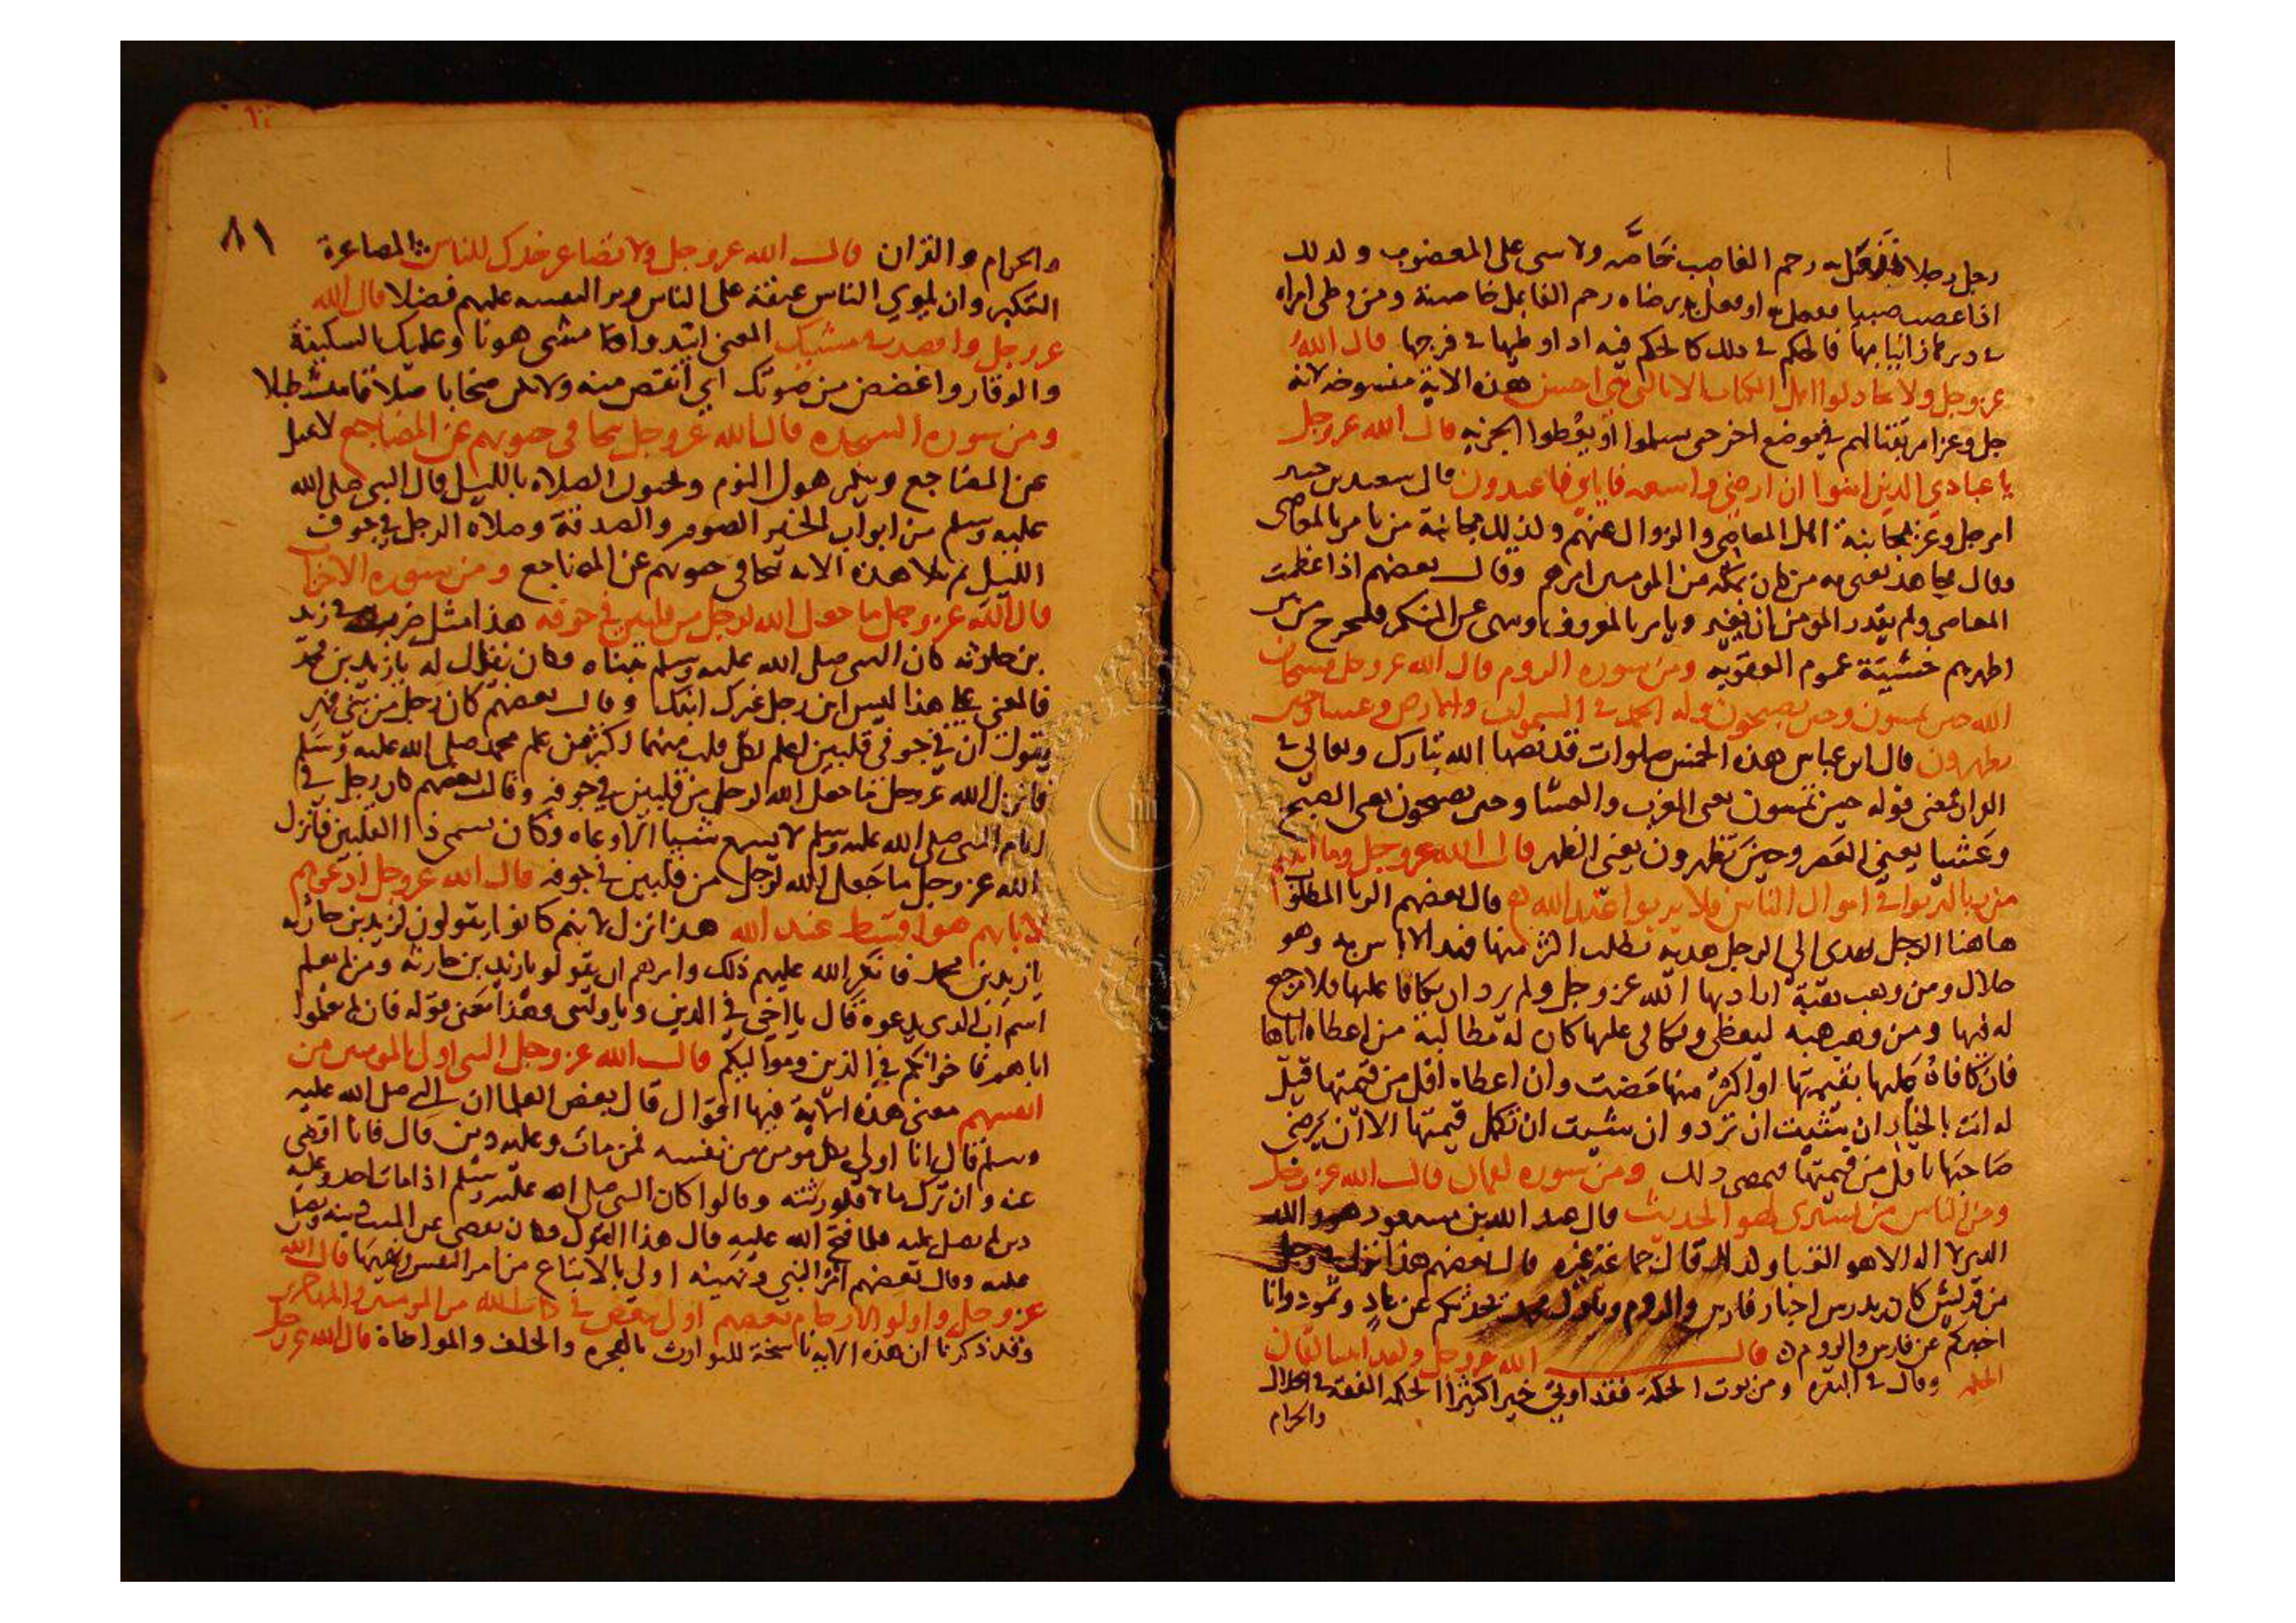 رجل رجلا فقتله رحم الغاصب خاصه ولا شي على المغصوب وكذلك
اذا غصب صبيا ففعل به او فعل به برضاه رحم الفاعل خاصة ومن وطى امراة
في دبرها زانيا بها فالحكم في ذلك كالحكم فيه اذا وطيها في فرجها قال الله
عز وجل ولا تجادلوا اهل الكتاب الا بالتي هي احسن هذه الاية منسوخه لانه
جل وعز امر بقتالهم في موضع اخر حتى يسلموا او يعطوا الجزيه قال الله عز وجل
يا عبادي الذين امنوا ان ارضي واسعه فاياي فاعبدون قال سعيد بن جبير
امر جل وعز بمجانبة اهل المعاصي والزوال عنهم وكذلك مجانبة من يامر بالمعاصي
وقال مجاهد يعني به من كان بمكه من المومنين امرهم وقال بعضهم اذا عظمت
المعاصي ولم يقدر المومن ان يغير ويامر بالمعروف وينهى عن المنكر فليخرج من بين
اظهرهم خشية عموم العقوبه ومن سوره الروم قال الله عز وجل فسبحان
الله حين تمسون وحين تصبحون وله الحمد في السموات والارض وعشيا وحين
تظهرون قال ابن عباس هذه الخمس صلوات قد نصها الله تبارك وتعالى في
القران فمعنى قوله حين تمسون يعني المغرب والعشا وحين تصبحون يعني الصبح
وعشيا يعني العصر وحين تظهرون يعني الظهر قال الله عز وجل وما اتيتم
من ربا لتربوا في اموال الناس فلا يربوا عند الله قال بعضهم الربا المطلوب
هاهنا الرجل يهدي الى الرجل هديه يطلب اكثر منها فهذا لا باس به وهو
حلال ومن وهب هبة اراد بها الله عز وجل ولم يرد ان يكافا عليها فلا رجع
له فيها ومن وهب هبه ليعطى ويكافى عليها كان له مطالبة من اعطاه اياها
فان كافاه عليها بقيمتها او اكثر منها مضت وان اعطاه اقل من قيمتها قيل
له انت بالخيار ان شيت ان ترد وان شيت ان تكمل قيمتها الا ان يرضى
صاحبها باقل من قيمتها فيمضي ذلك ومن سوره لقمان قال الله عز وجل
ومن الناس من يشتري لهو الحديث قال عبد الله بن مسعود هو والله
الذي لا اله الا هو الغنا وقال بعضهم هذا نزل في رجل
من قريش كان يدرس اخبار فارس والروم ويقول محمد يحدثكم عن عاد وثمود وانا
اخبركم عن فارس والروم قال الله عز وجل ولقد اتينا لقمان
الحكمه وقال في البقره ومن يوت الحكمة فقد اوتي خيرا كثيرا الحكمة الفقه في الحلال
والحرام
٨١
والحرام والقران قال الله عز وجل ولا تصاعر خدك للناس المصاعرة
التكبر وان يلوي الناس عنقه على الناس ويرى لنفسه عليهم فضلا قال الله
عز وجل واقصد في مشيك المعنى وامش مشي هونا وعليك بالسكينة
والوقار واغضض من صوتك اي انقص منه
ومن سوره السجده قال الله عز وجل تتجافى جنوبهم عن المضاجع
عن المضاجع النوم ويحيون الصلاه بالليل قال النبي صلى الله
عليه وسلم من ابواب الخير الصوم والصدقة وصلاه الرجل في جوف
الليل ثم تلا هذه الايه تتجافى جنوبهم عن المضاجع ومن سوره الاحزاب
قال الله عز وجل ما جعل الله لرجل من قلبين في جوفه هذا مثل ضرب في زيد
بن حارثه كان النبي صلى الله عليه وسلم تبناه وكان يقال له يا زيد بن محمد
فالمعنى على هذا ليس ابن رجل غيرك ابنك وقال بعضهم كان رجل من بني فهر
يقول ان في جوفي قلبين اعلم بكل قلب منهما اكثر من علم محمد صلى الله عليه وسلم
فانزل الله عز وجل ما جعل الله لرجل من قلبين في جوفه وقال بعضهم كان رجل في
ايام النبي صلى الله عليه وسلم لا يسمع شيا الا وعاه وكان يسمى ذا القلبين فانزل
الله عز وجل ما جعل الله لرجل من قلبين في جوفه قال الله عز وجل ادعوهم
لابايهم هو اقسط عند الله هذا نزل لانهم كانوا يقولون لزيد بن حارثه
يا زيد بن محمد فانكر الله عليهم ذلك وامرهم ان يقولوا يا زيد بن حارثه ومن لم يعلم
اسم اب الذي يدعوه قال يا اخي في الدين ويا وليي وهذا معنى قوله فان لم تعلموا
اباهم فاخوانكم في الدين ومواليكم قال الله عز وجل النبي اولى بالمومنين من
انفسهم معنى هذه الاية فيها اقوال قال بعض العلما ان النبي صلى الله عليه
وسلم قال انا اولى بكل مومن من نفسه فمن مات وعليه دين قال فانا اقضي
عنه وان ترك مالا فلورثته وقالوا كان النبي صلى الله عليه وسلم اذا مات احد وعليه
دين لم يصل عليه فلما فتح الله عليه قال هذا القول فكان يقضي عن الميت دينه ويصلي
عليه وقال بعضهم امر النبي ونهيه اولى بالاتباع من امر النفس ونهيها قال الله
عز وجل واولو الارحام بعضهم اولى ببعض في كتاب الله من المومنين والمهاجرين
وقد ذكرنا ان هذه الايه ناسخة للتوارث بالهجره والحلف والمواخاة قال الله عز وجل